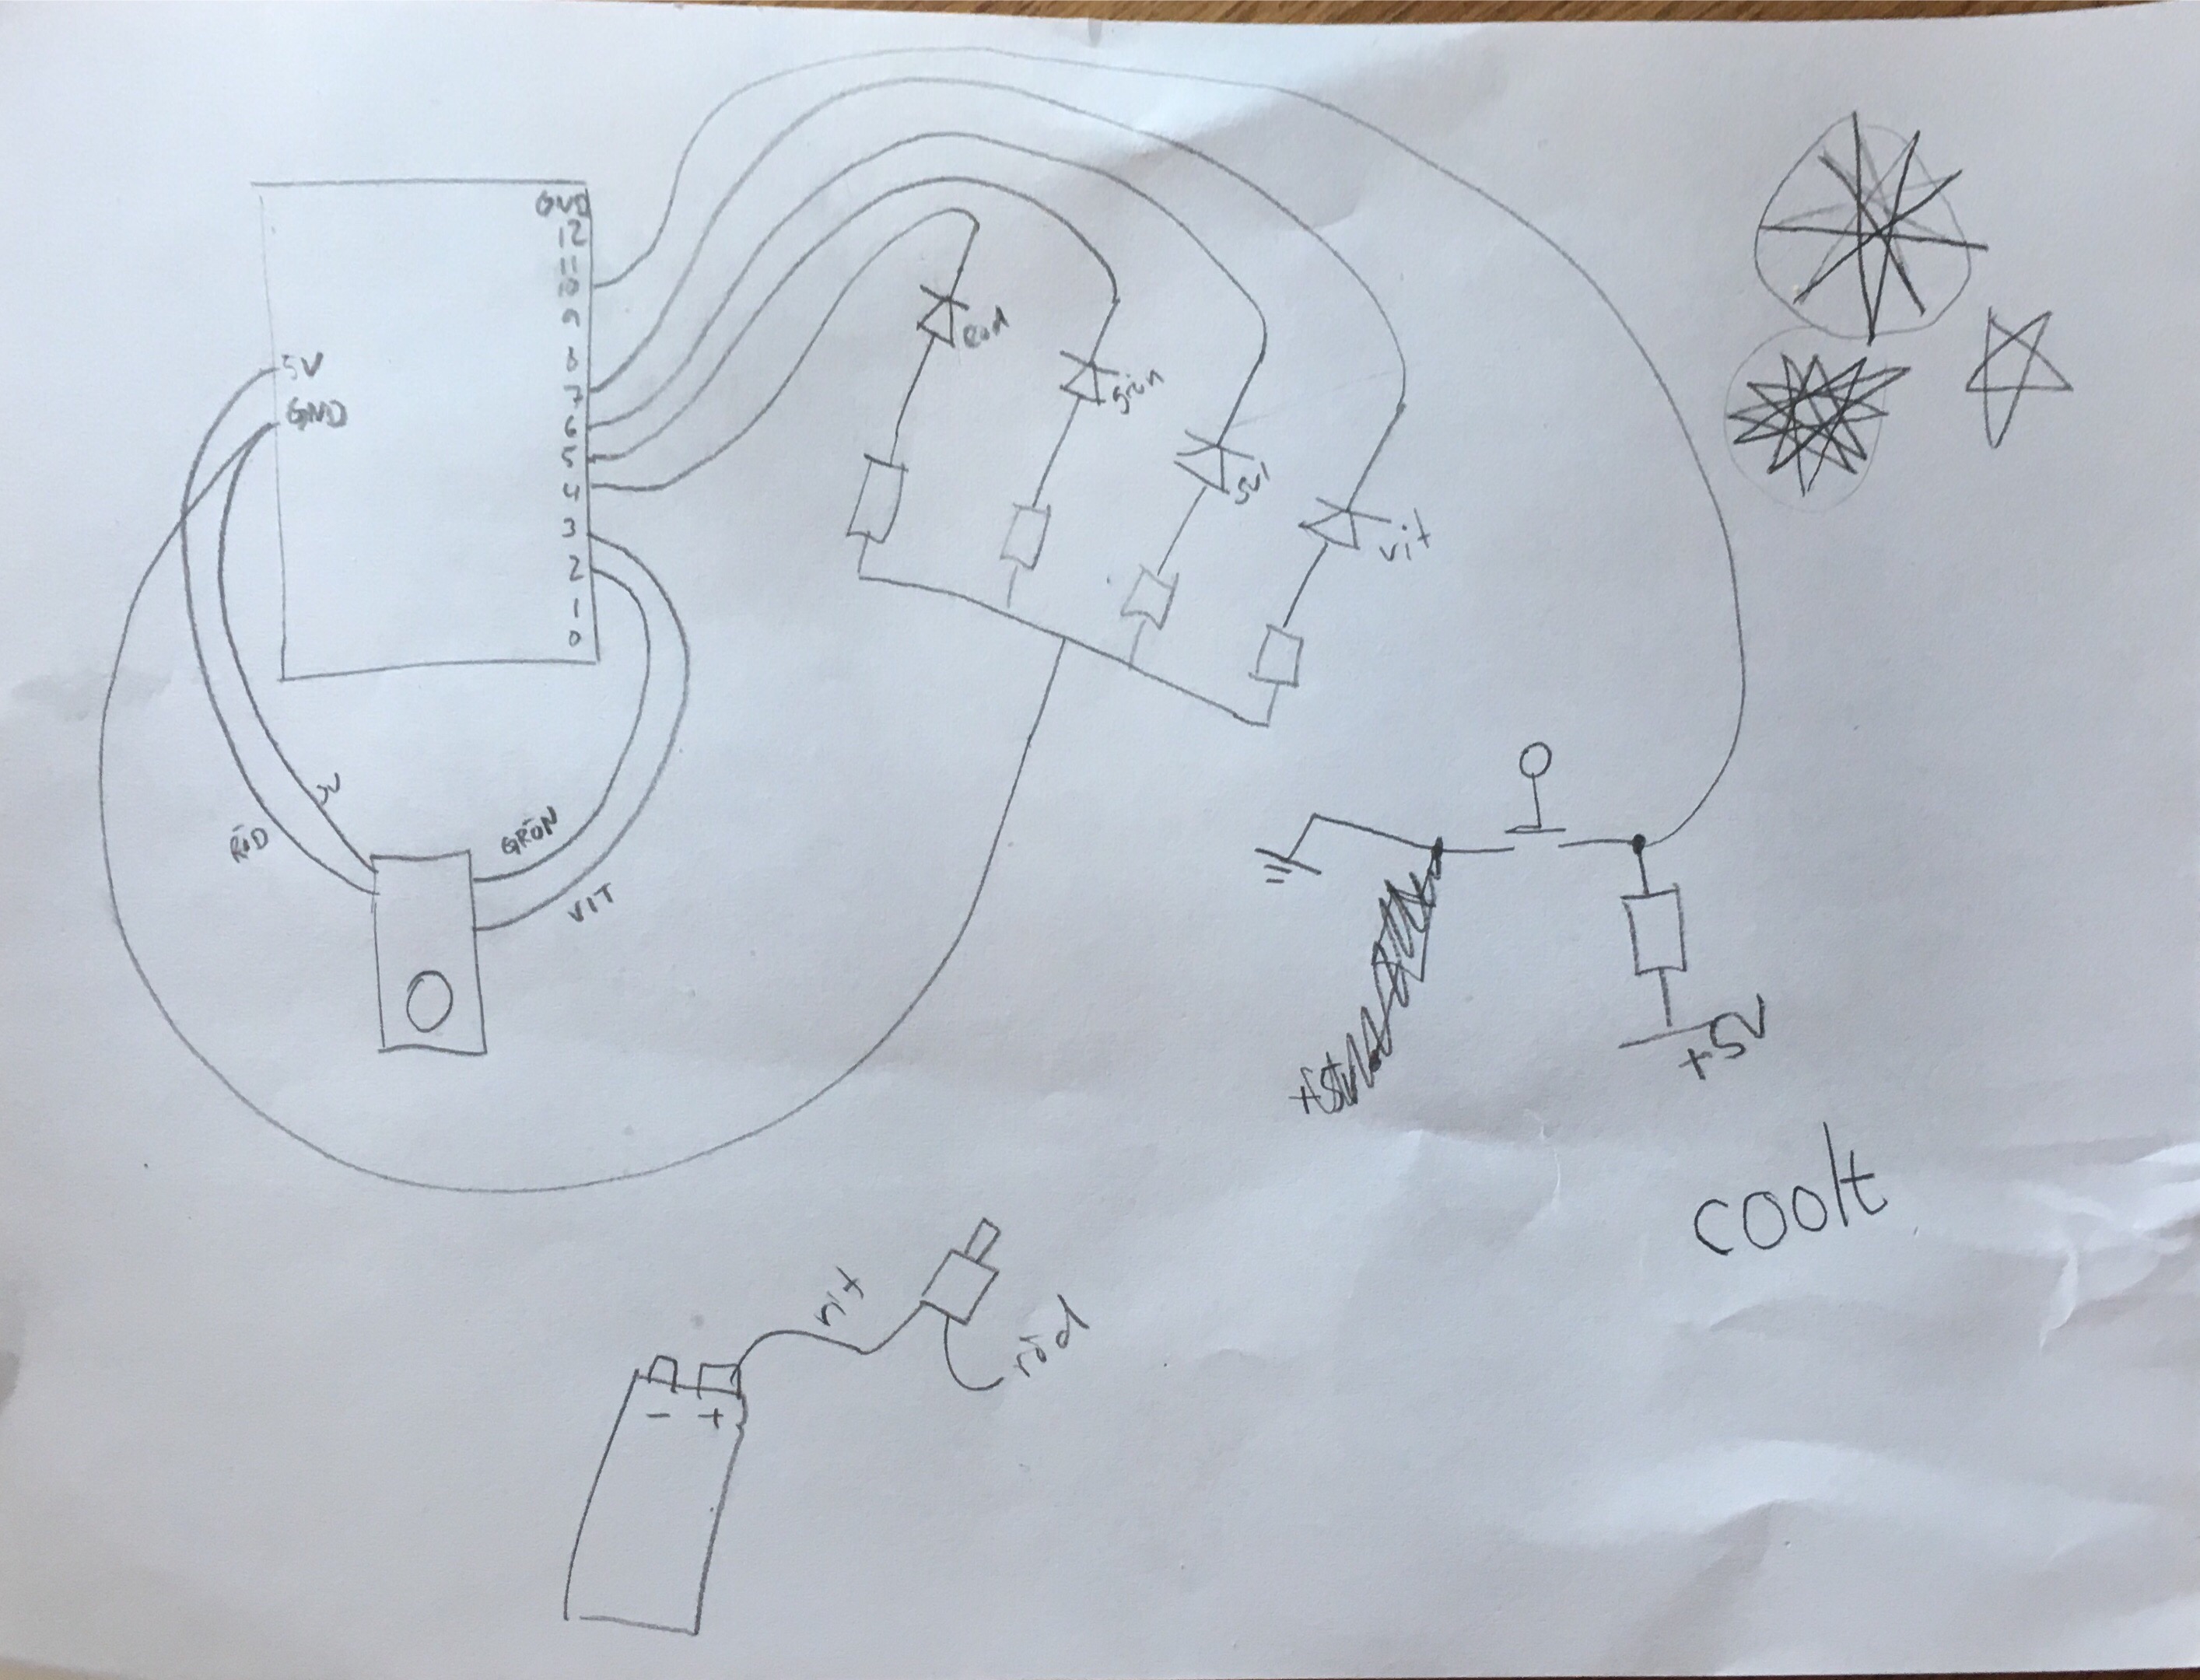 GND
12
11
10
9
8
7
6
5
4
3
2
1
0
5V
GND
röd
grön
gul
vit
RÖD
GRÖN
VIT
+5V
coolt
vit
röd
- +